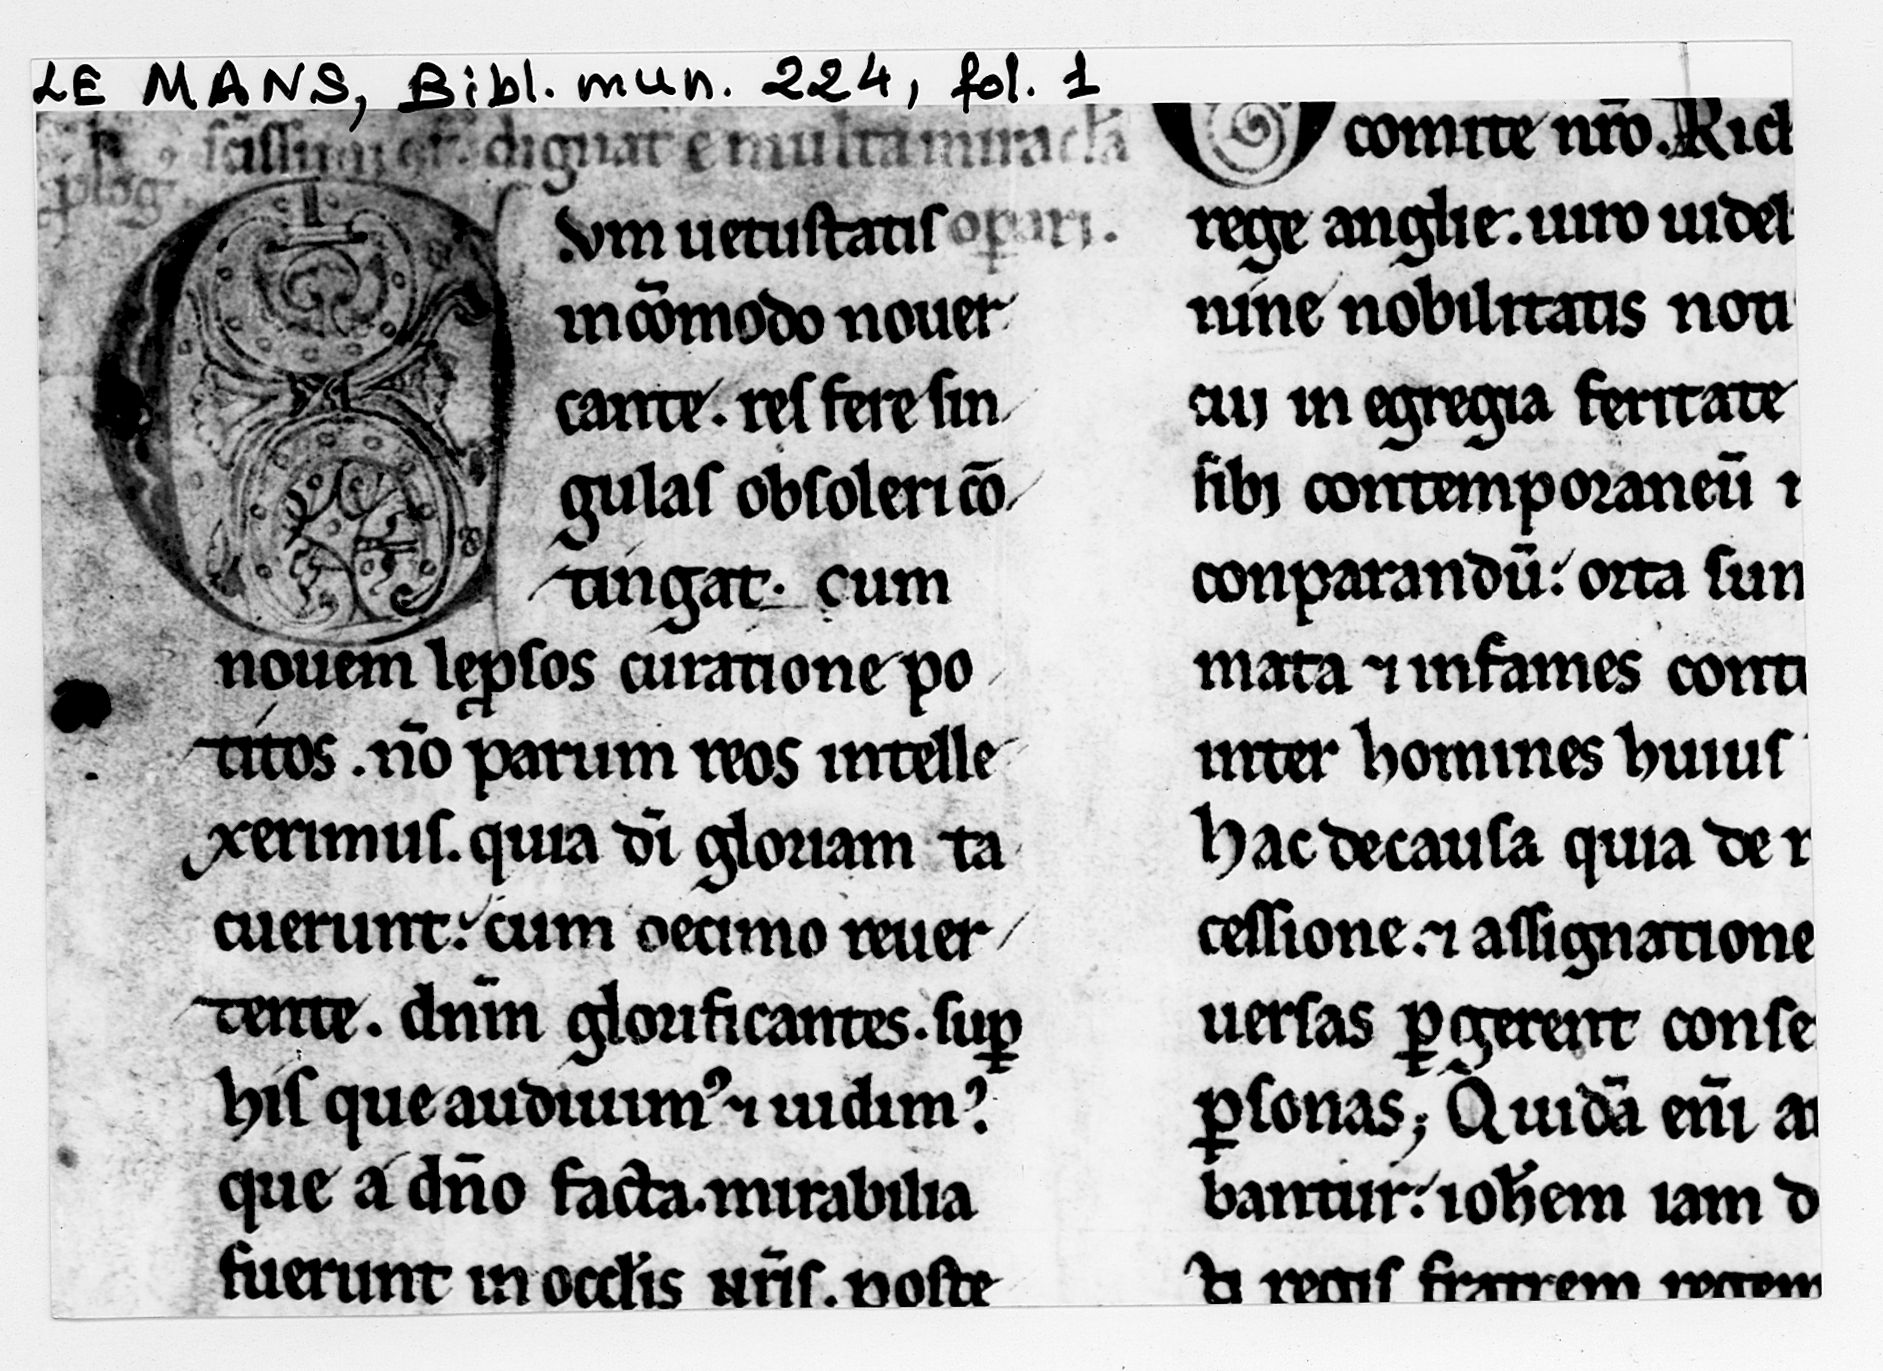 LE MANS, Bibl. mun. 224, fol. 1
dignat̾ e multa miracl̄a
ꝓlog᷒
Cvm uetuſtatiſ oꝑari.
incōmodo nouer
cante. reſ fere ſin
gulaſ obſoleri cō
tingat. cum
nouem lepſos curatione po
titos. nō parum reos intelle
xerimuſ. quia dī gloriam ta
cuerunt: cum decimo reuer
tente. dnīn glorificantes. ſuꝑ
hiſ que audiuimꝰ ⁊ uidimꝰ.
que a dn̄o facta. mirabilia
fuerunt in occl̄is nr̄iſ. poſte
comite nr̄o. Rich
rege anglie. uiro uidel
nine nobilitatis noti
cui in egregia feritate
ſibi contemporaneū ⁊
conparandū: orta ſun
mata ⁊ infames conti
inter homines huiuſ
hac de cauſa quia de r
ceſſione. ⁊ aſſignatione
uerſas ꝑgerent conſe
ꝑſonas; Quidā enī au
bantur: ioh̄em iam d
regiſ fratrem regem